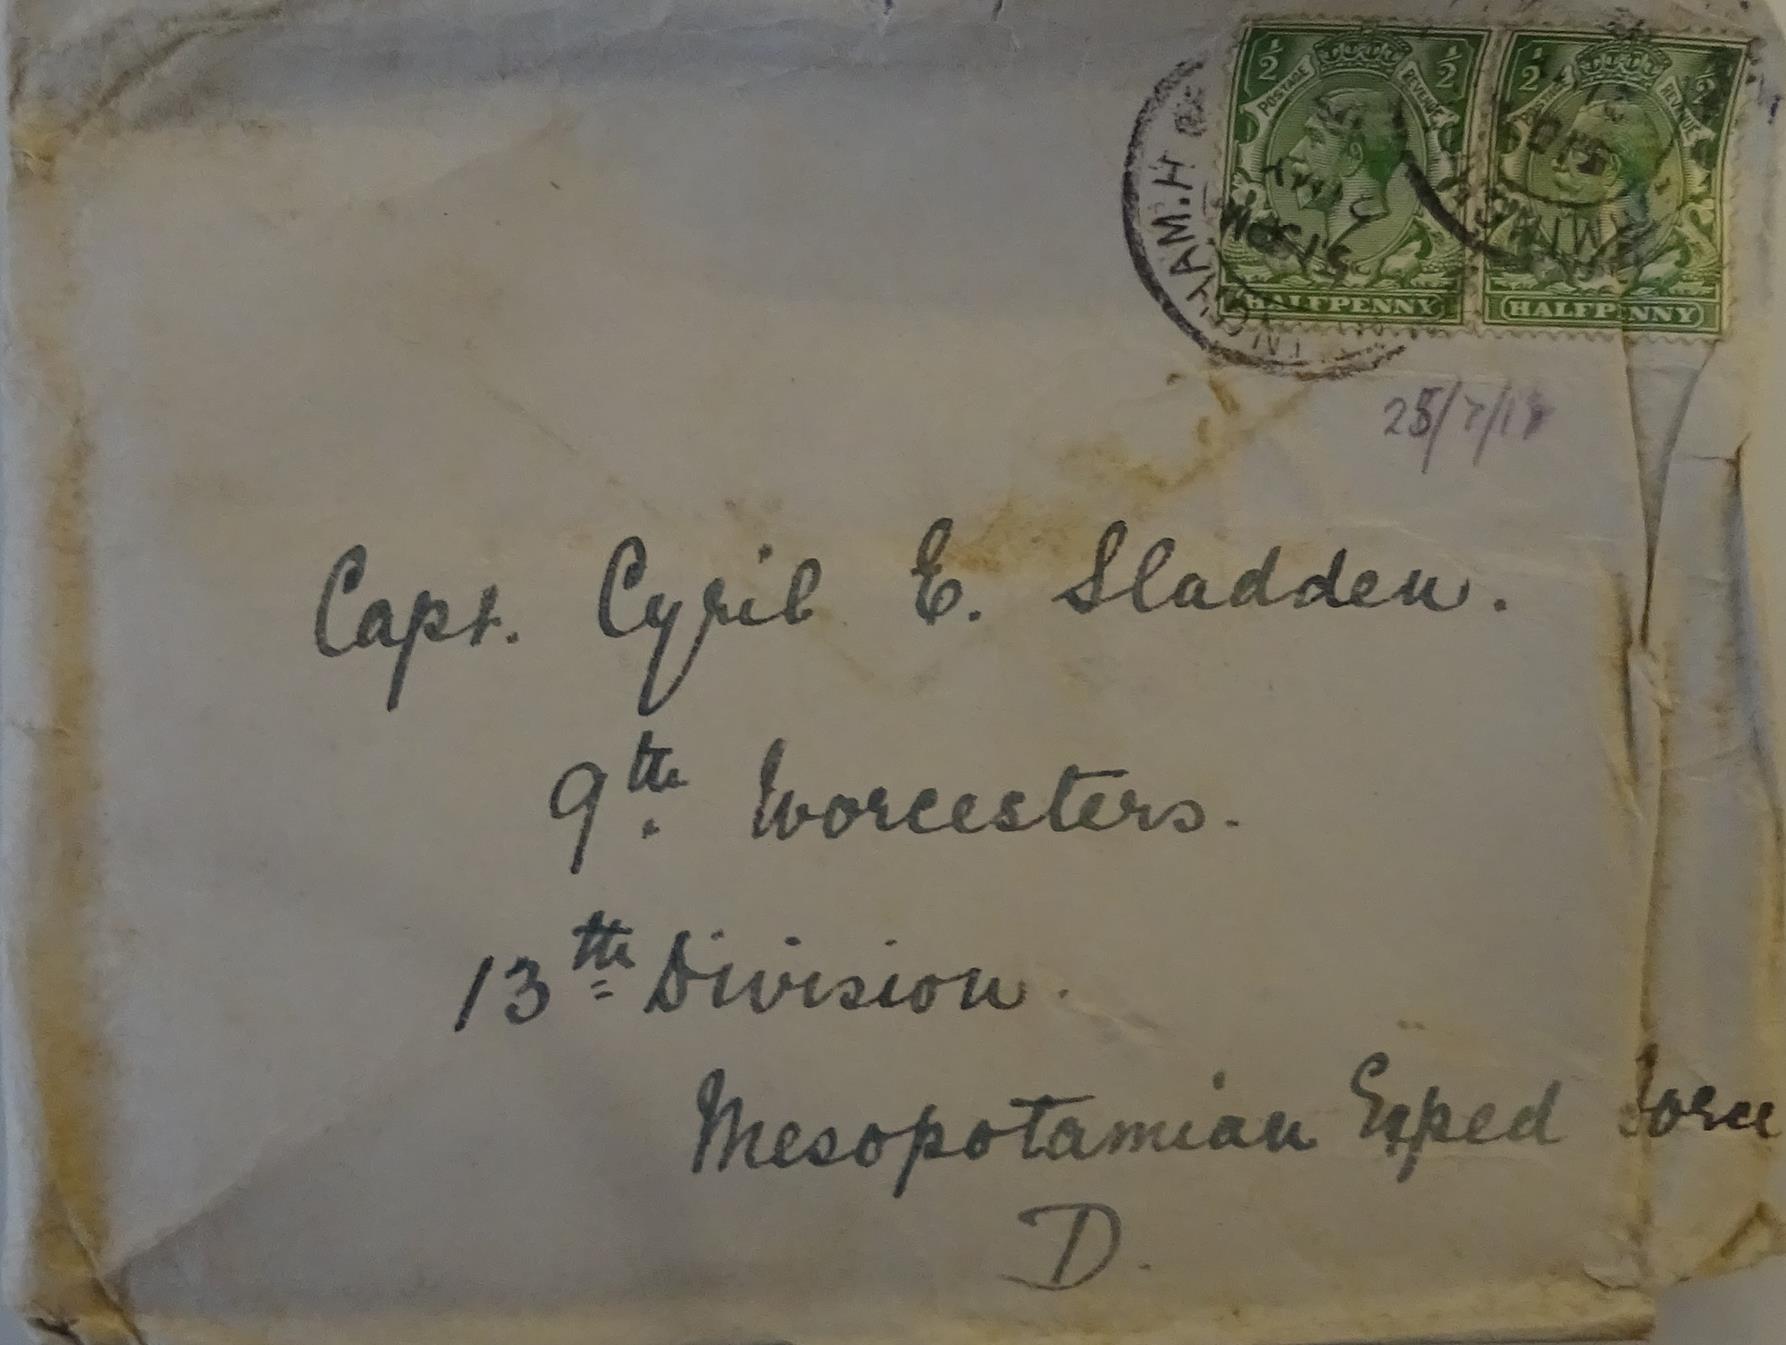 ½ POSTAGE REVENUE ½ ½ POSTAGE REVENUE ½
HALFPENNY HALFPENNY
25/7/18
Capt. Cyril E. Sladden.
9th. Worcesters.
13th Division.
Mesopotamian Exped Force
D.